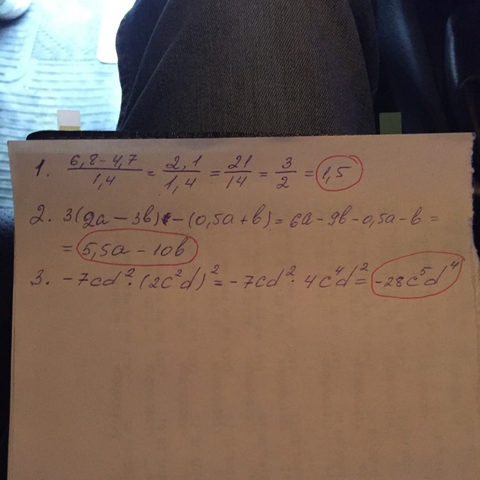 1. (6,8-4,7)/1,4 = 2,1/1,4 = 21/14 = 3/2 = 1,5
2. 3(2a-3b) - (0,5a+b) = 6a-9b-0,5a-b =
= 5,5a-10b
3. -7cd²·(2c²d)² = -7cd²·4c⁴d² = -28c⁵d⁴